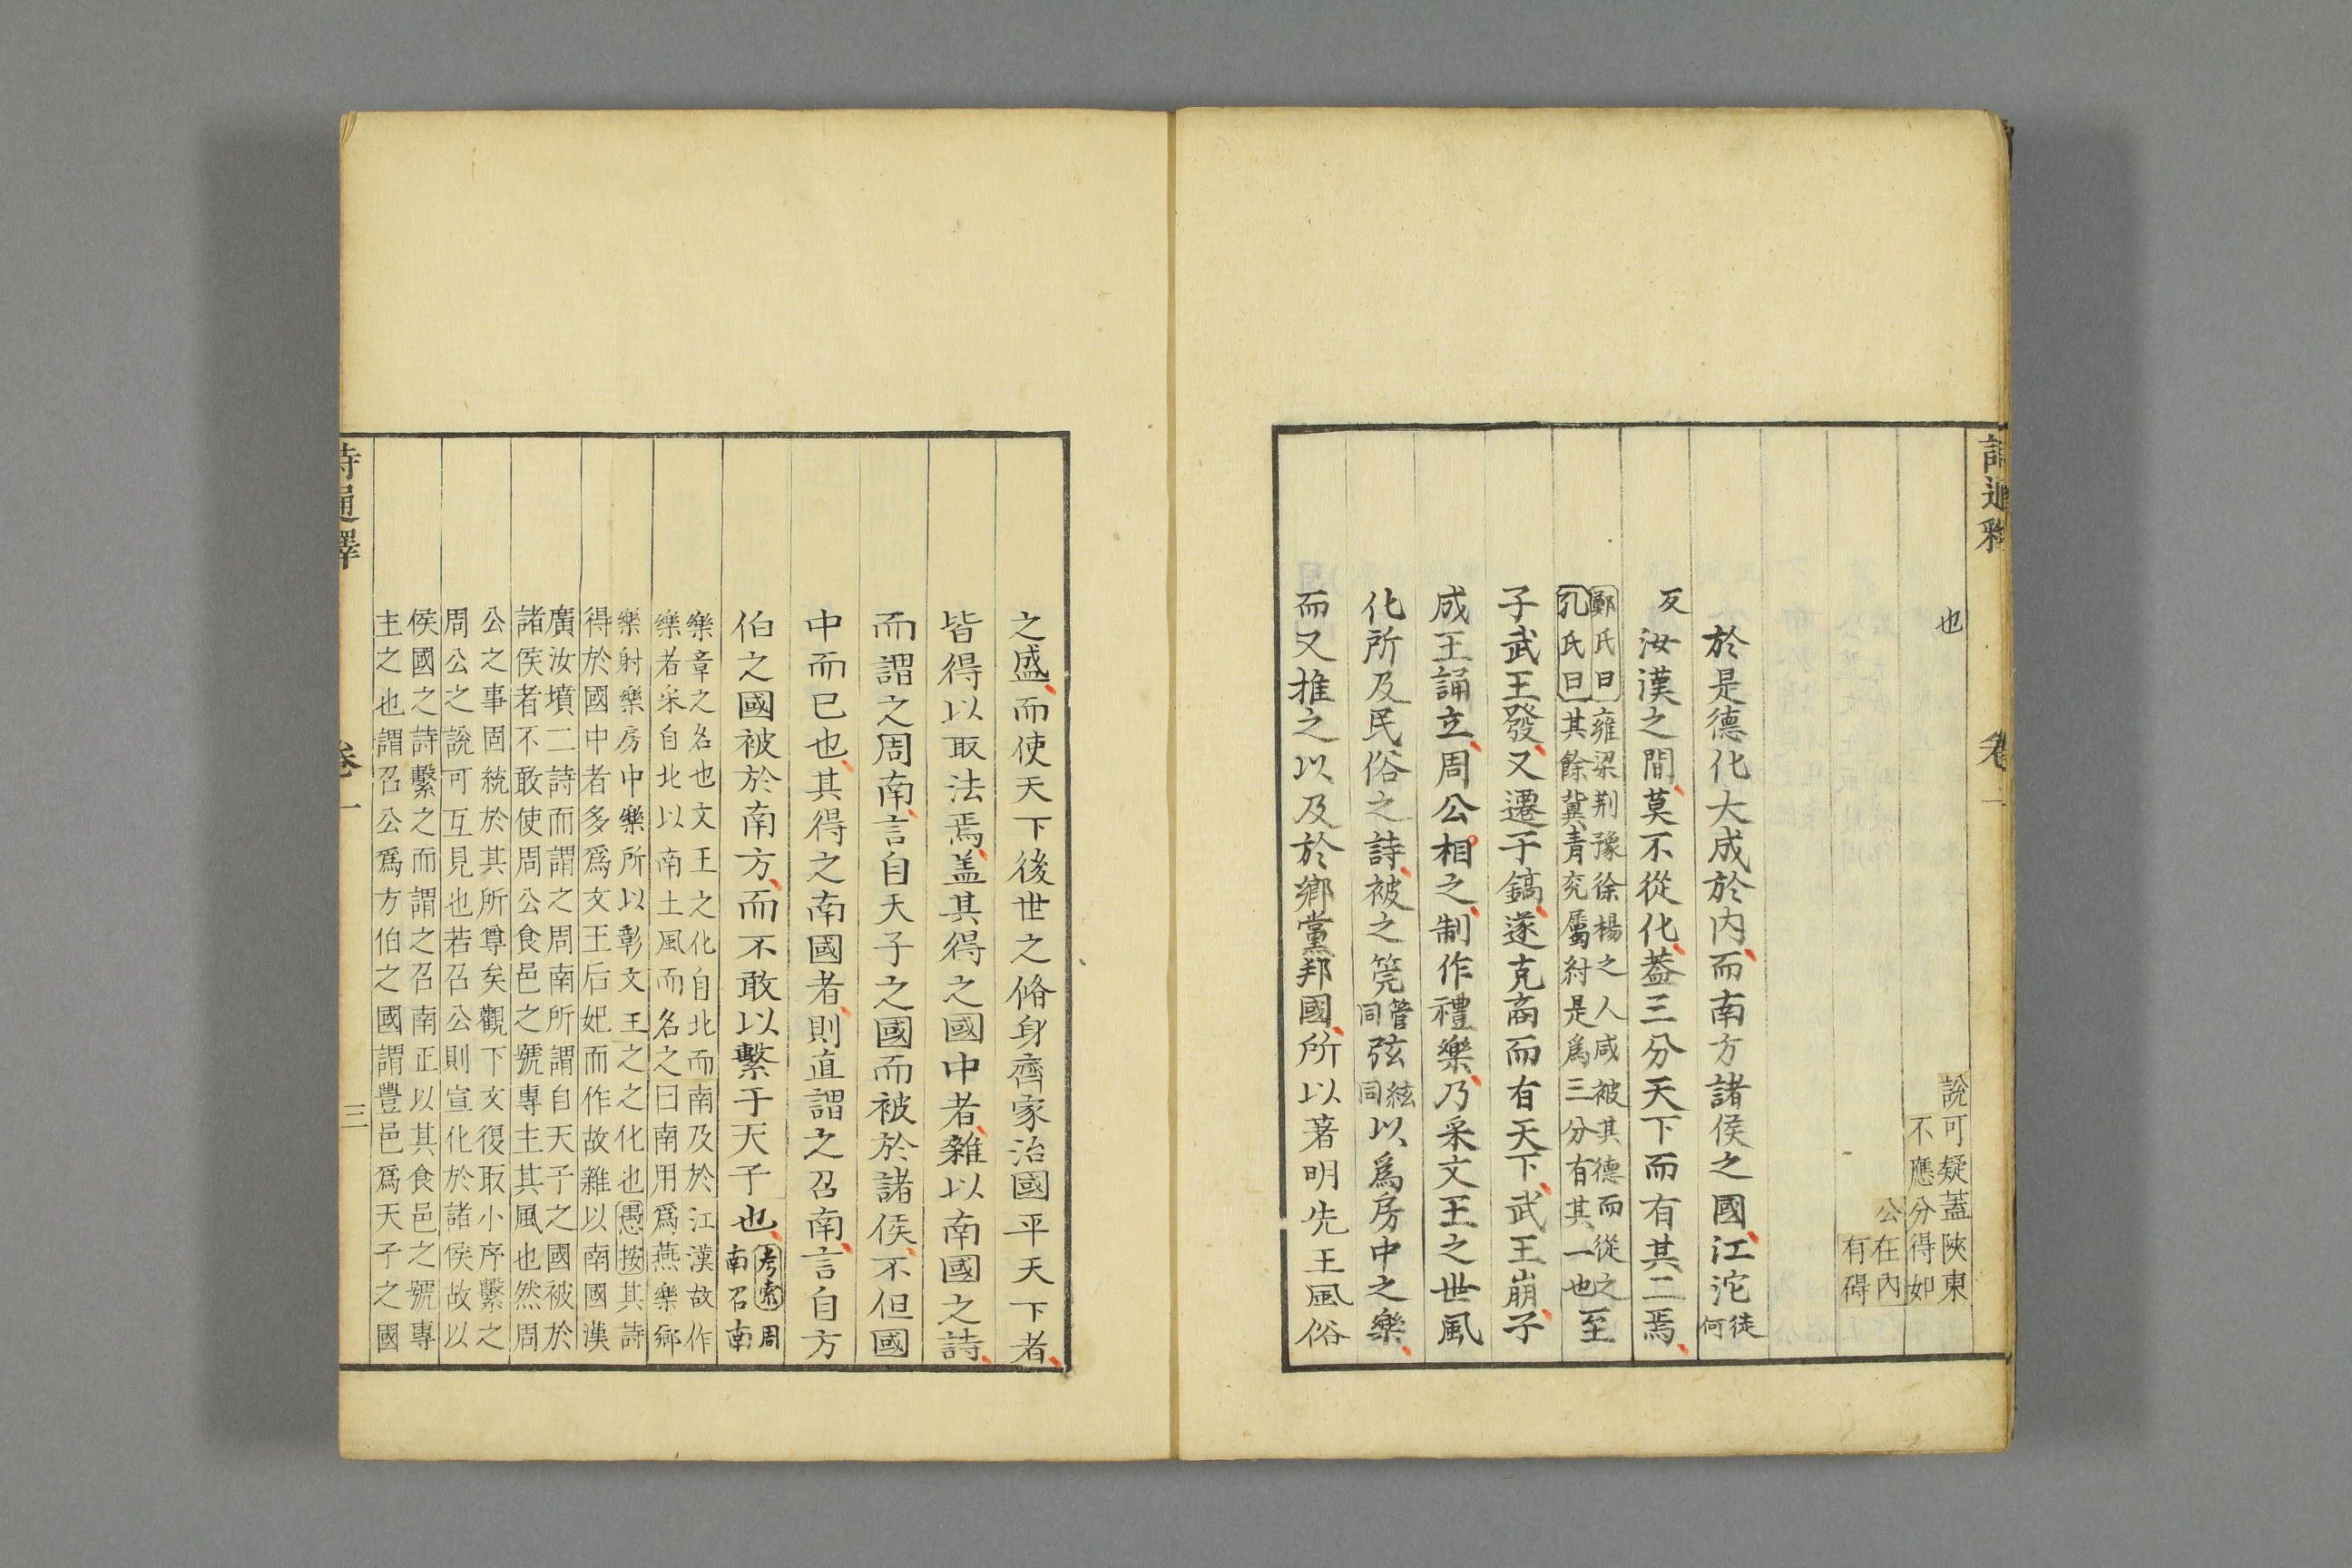 也
說可疑蓋陝東
不應分得如
公在內
有碍
於是德化大成於內而南方諸侯之國江沱徒
何
反汝漢之間莫不從化葢三分天下而有其二焉
鄭氏曰雍梁荆豫徐楊之人咸被其德而從之
孔氏曰其餘冀青兖屬紂是爲三分有其一也至
子武王發又遷于鎬遂克商而有天下武王崩子
成王誦立周公相之制作禮樂乃采文王之世風
化所及民俗之詩被之筦管
同弦絃
同以爲房中之樂
而又推之以及於鄉黨邦國所以著明先王風俗
之盛而使天下後世之脩身齊家治國平天下者
皆得以取法焉盖其得之國中者雜以南國之詩
而謂之周南言自天子之國而被於諸侯不但國
中而已也其得之南國者則直謂之召南言自方
伯之國被於南方而不敢以繫于天子也考索周
南召南
樂章之名也文王之化自北而南及於江漢故作
樂者采自北以南土風而名之曰南用爲燕樂鄉
樂射樂房中樂所以彰文王之之化也愚按其詩
得於國中者多爲文王后妃而作故雜以南國漢
廣汝墳二詩而謂之周南所謂自天子之國被於
諸侯者不敢使周公食邑之號專主其風也然周
公之事固統於其所尊矣觀下文復取小序繫之
周公之說可互見也若召公則宣化於諸侯故以
侯國之詩繫之而謂之召南正以其食邑之號專
主之也謂召公爲方伯之國謂豐邑爲天子之國
詩通釋 卷一 三